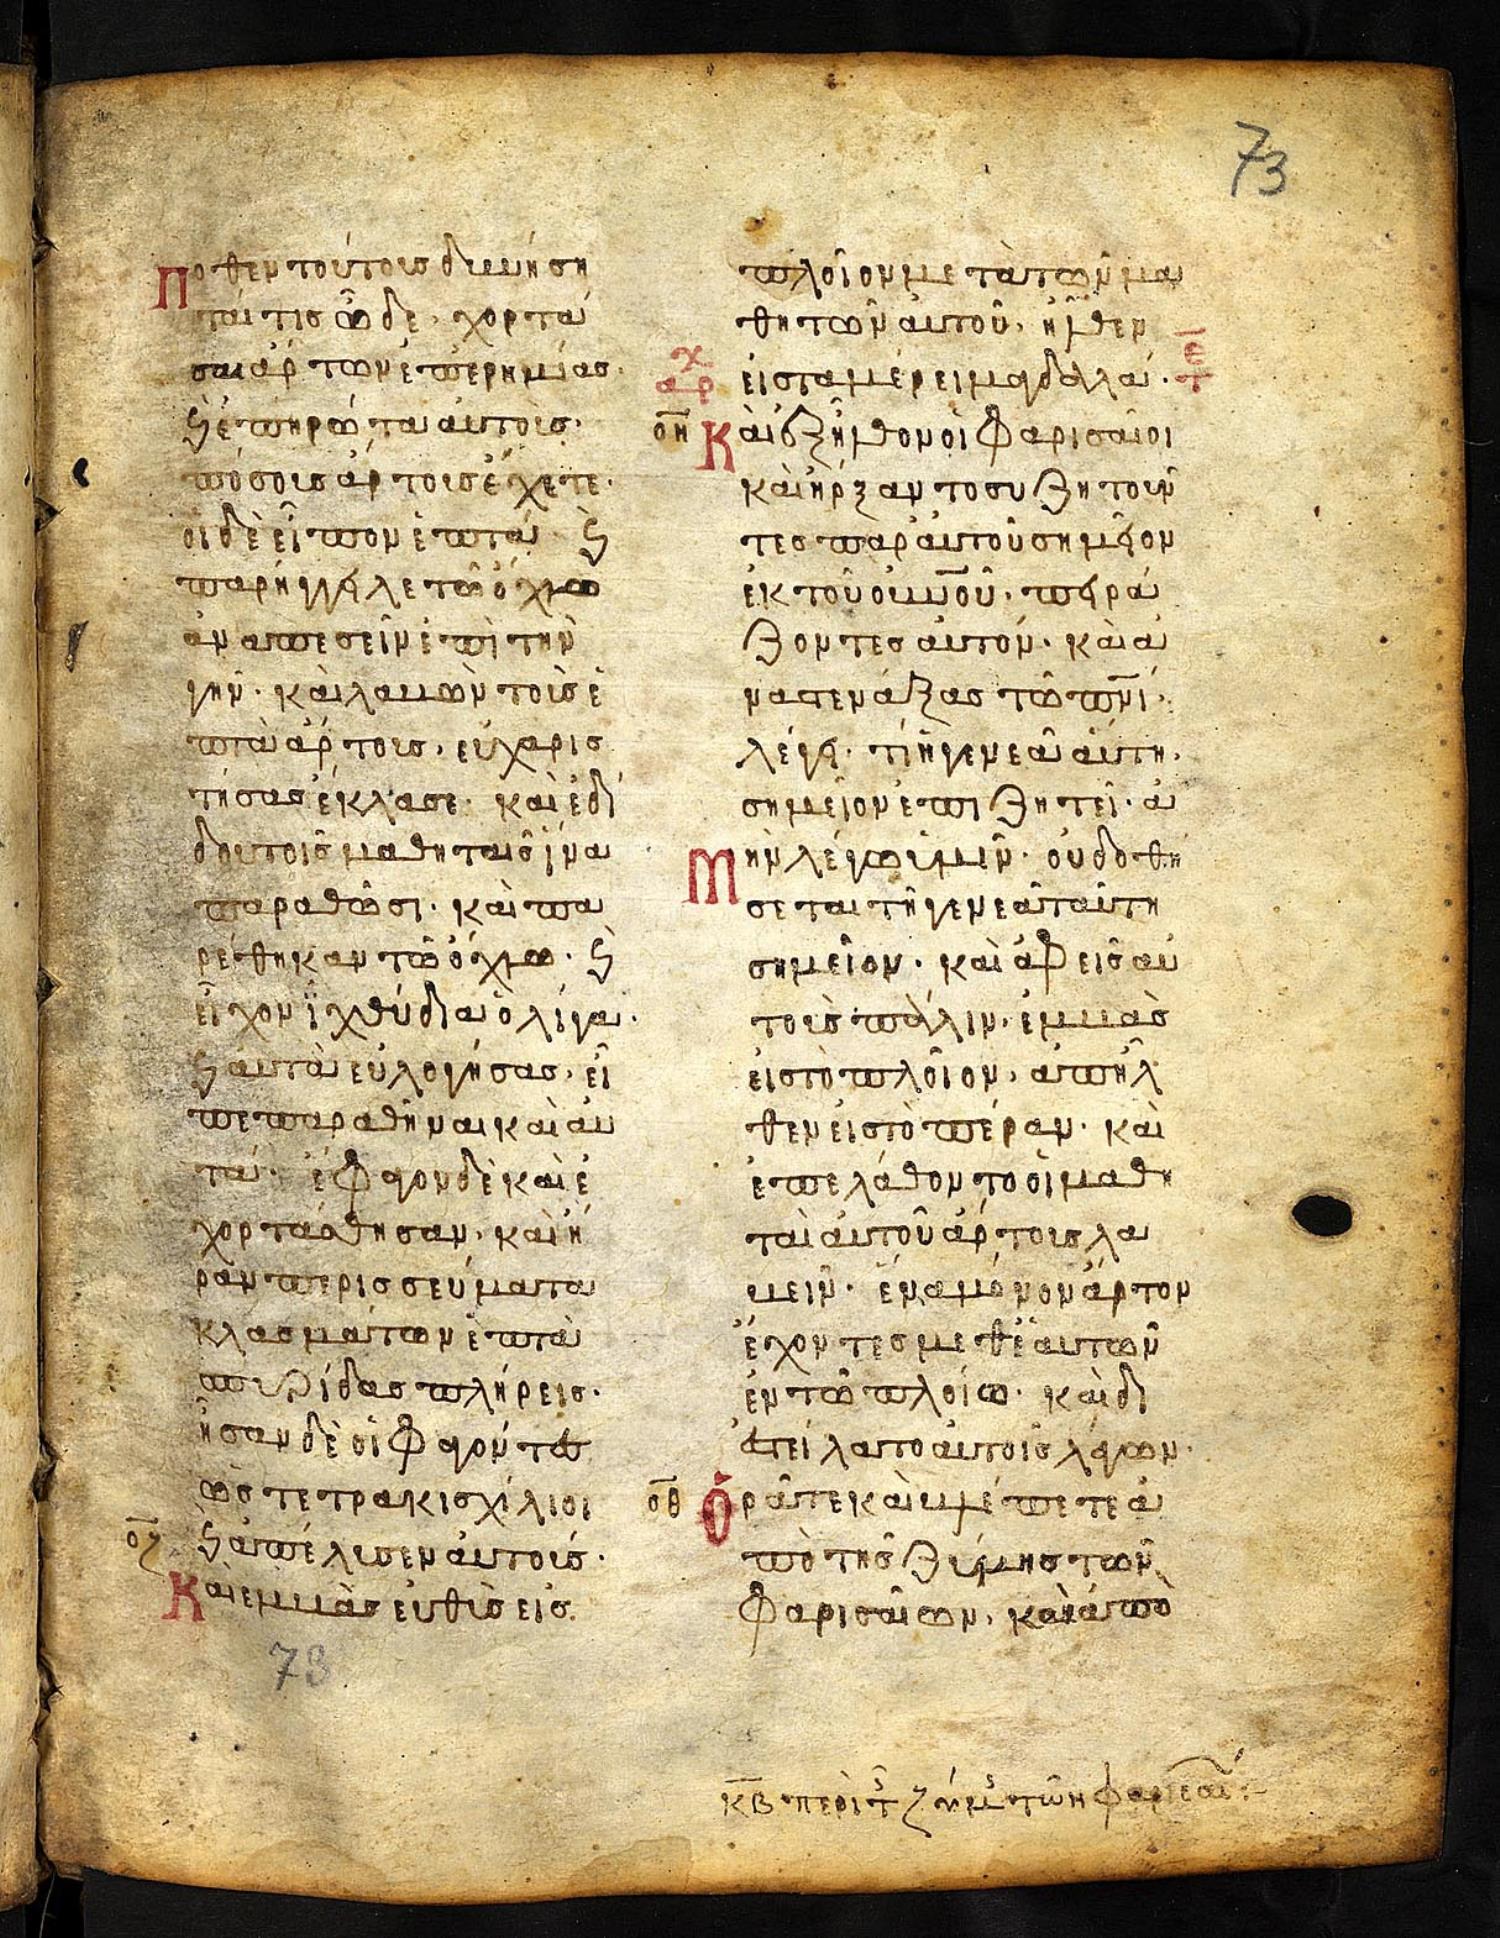 73
Πόθεν τούτους δυνήση
ταί τις ὧδε· χορτά
σαι ἄρτων ἐπ ερημίας·
ϛ ἐπηρώτα αὐτοῖς·
πόσους ἄρτους ἔχετε·
οἱ δὲ εἶπον ἑπτά· ϛ
παρήγγειλε τῶ ὄχλω
ἀναπεσεῖν ἐπὶ τὴν
γῆν· καὶ λαβὼν τοὺς ἑ
πτὰ ἄρτους, εὐχαρισ
τήσας ἔκλασε· καὶ ἐδί
δου τοῖς μαθηταῖς ἵνα
παραθῶσι· καὶ πα
ρέθηκαν τῶ ὄχλω· ϛ
εἶχον ἰχθύδια ὀλίγα·
ϛ αὐτὰ εὐλογήσας, εἶ
πε παραθῆναι καὶ αὐ
τά· ἔφαγον δὲ καὶ ἐ
χορτάσθησαν, καὶ ἦ
ραν περισσεύματα
κλασμάτων ἑπτὰ
σπυρίδας πλήρεις·
ἦσαν δὲ οἱ φαγόντες
ὡς τετρακισχίλιοι
ϛ ἀπέλυσεν αὐτούς·
οζ
Καὶ εμβὰς εὐθὺς εἰς
73
πλοῖον μετὰ τῶν μα
θητῶν αὐτοῦ, ἦλθεν
εἰς τα μέρει μαγδαλά·
αρχ
ε τ
οη
Καὶ ἐξῆλθον οἱ Φαρισαῖοι
καὶ ἤρξαντο συζητοῦν
τες παρ αὐτοῦ σημεῖον
ἐκ τοῦ οὐνοῦ, πειρά
ζοντες αὐτόν· καὶ ἀ
ναστενάξας τῶ πνι,
λέγει· τί ἡ γενεὰ αὕτη,
σημεῖον ἐπιζητεῖ· ἀ
Μὴν λέγω ὑμῖν· οὐ δοθή
σεται τῆ γενεᾶ ταύτη
σημεῖον· καὶ ἀφεὶς αὐ
τοὺς πάλιν, ἐμβὰς
εἰς τὸ πλοῖον, ἀπῆλ
θεν εἰς τὸ πέραν· καὶ
ἐπελάθοντο οἱ μαθη
ταὶ αὐτοῦ ἄρτους λα
βεῖν· ἕνα μόνον ἄρτον
ἔχοντες μεθ ἑαυτῶν
ἐν τῶ πλοίω· καὶ δι
εστείλατο αὐτοῖς λέγων·
οθ
Ὁρᾶτε καὶ βλέπετε ἀ
πὸ τῆς ζύμης τῶν
Φαρισαίων, καὶ ἀπὸ
κβ περὶ τ ζύμ τῶν φαρισαί: